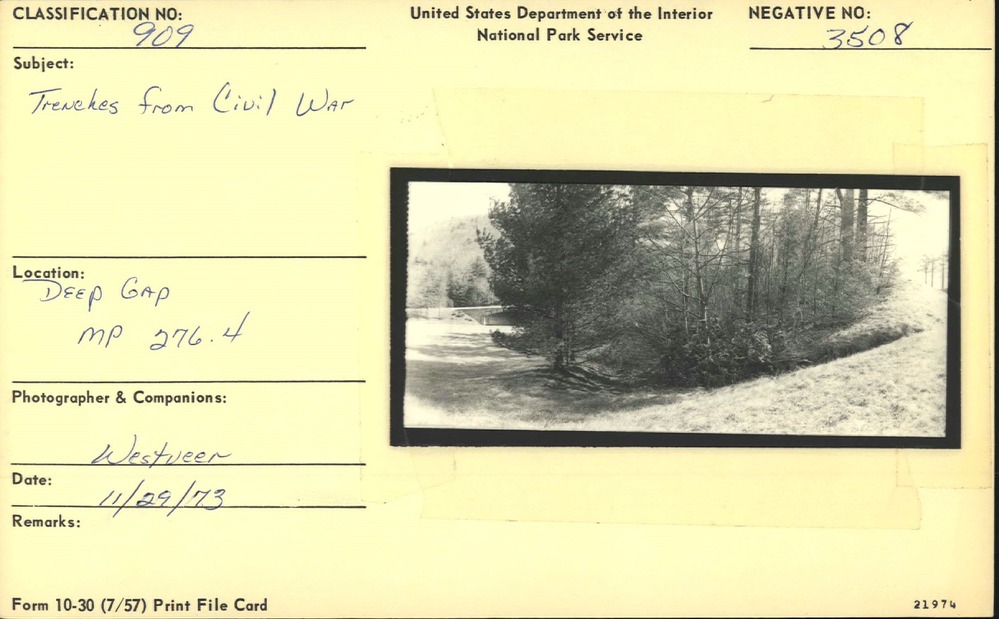 CLASSIFICATION NO:
909
United States Department of the Interior
National Park Service
NEGATIVE NO:
3508
Subject:
Trenches from Civil War
Location:
Deep Gap
MP 276.4
Photographer & Companions:
Westveer
Date:
11/29/73
Remarks:
Form 10-30 (7/57) Print File Card
21974